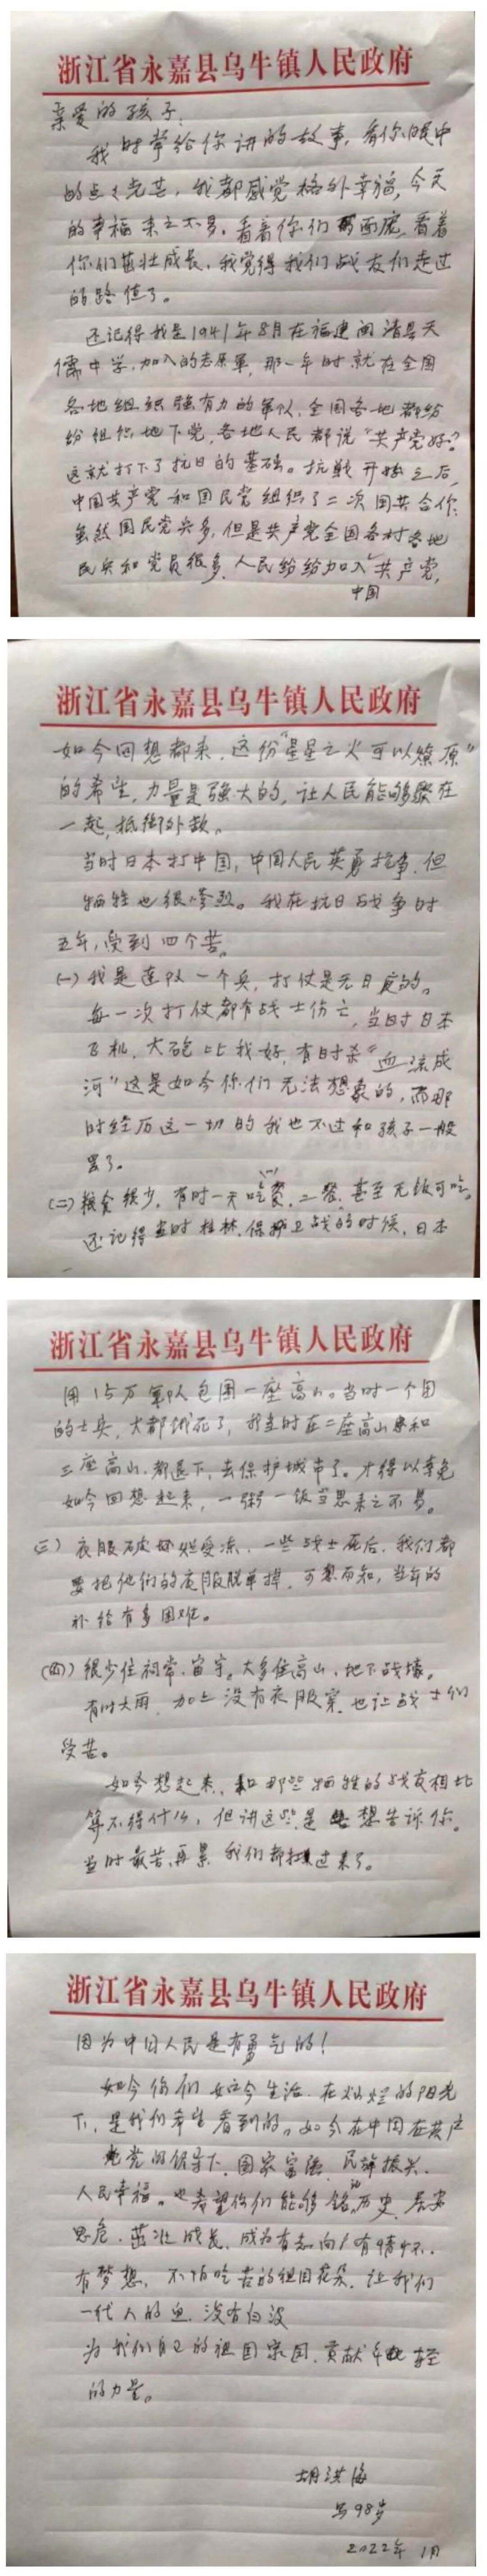 浙江省永嘉县乌牛镇人民政府
亲爱的孩子：
我时常给你讲的故事，看你眼中
的点点光芒，我都感觉格外幸福，今天
的幸福来之不易。看着你们的面庞，看着
你们茁壮成长，我觉得我们战友们走过
的路值了。
还记得我是1941年8月在福建闽清县天
儒中学，加入的志愿军，那一年时就在全国
各地组织强有力的军队，全国各地都纷
纷组织地下党，各地人民都说“共产党好”
这就打下了抗日的基础。抗战开始之后，
中国共产党和国民党组织了二次国共合作，
虽然国民党兵多，但是共产党全国各村各地
民兵和党员很多，人民给给加入共产党，
中国
浙江省永嘉县乌牛镇人民政府
如今回想都来，这份“星星之火可以燎原”
的希望，力量是强大的，让人民能够聚在
一起，抵御外敌。
当时日本打中国，中国人民英勇抗争，但
牺牲也很惨烈。我在抗日战争时
五年，受到四个苦。
(一)我是连队一个兵，打仗是无日夜的。
每一次打仗都有战士伤亡，当时日本
飞机，大砲比我好，有时杀“血流成
河”这是如今你们无法想象的，而那
时经历这一切的我也不过和孩子一般
罢了。
(二)粮食很少，有时一天吃一餐，二餐，甚至无饭可吃。
还记得当时桂林，保护卫战的时候，日本
浙江省永嘉县乌牛镇人民政府
用15万军队包围一座高山。当时一个团
的士兵，大都饿死了，我当时在二座高山和
三座高山，都退下，去保护城市了。才得以幸免
如今回想起来，一粥一饭当思来之不易。
(三)衣服破烂受冻，一些战士死后，我们都
要把他们的衣服脱下掉，可想而知，当年的
补给有多困难。
(四)很少住祠堂，庙宇。大多住高山，地下战壕。
有时大雨，加上没有衣服穿，也让战士们
受苦。
如今想起来，和那些牺牲的战友相比
算不得什么，但讲这些是想告诉你。
当时最苦，再累，我们都扛过来了。
浙江省永嘉县乌牛镇人民政府
因为中国人民是有勇气的！
如今你们如今生活在灿烂的阳光
下，是我们希望看到的。如今在中国在共产
党的领导下，国家富强，民族振兴，
人民幸福。也希望你们能够铭记历史，居安
思危，茁壮成长，成为有志向有情怀，
有梦想，不怕吃苦的祖国花朵，让我们
一代人的血，没有白流
为我们自己的祖国家国，贡献年轻
的力量。
胡洪海
98岁
2022年1月